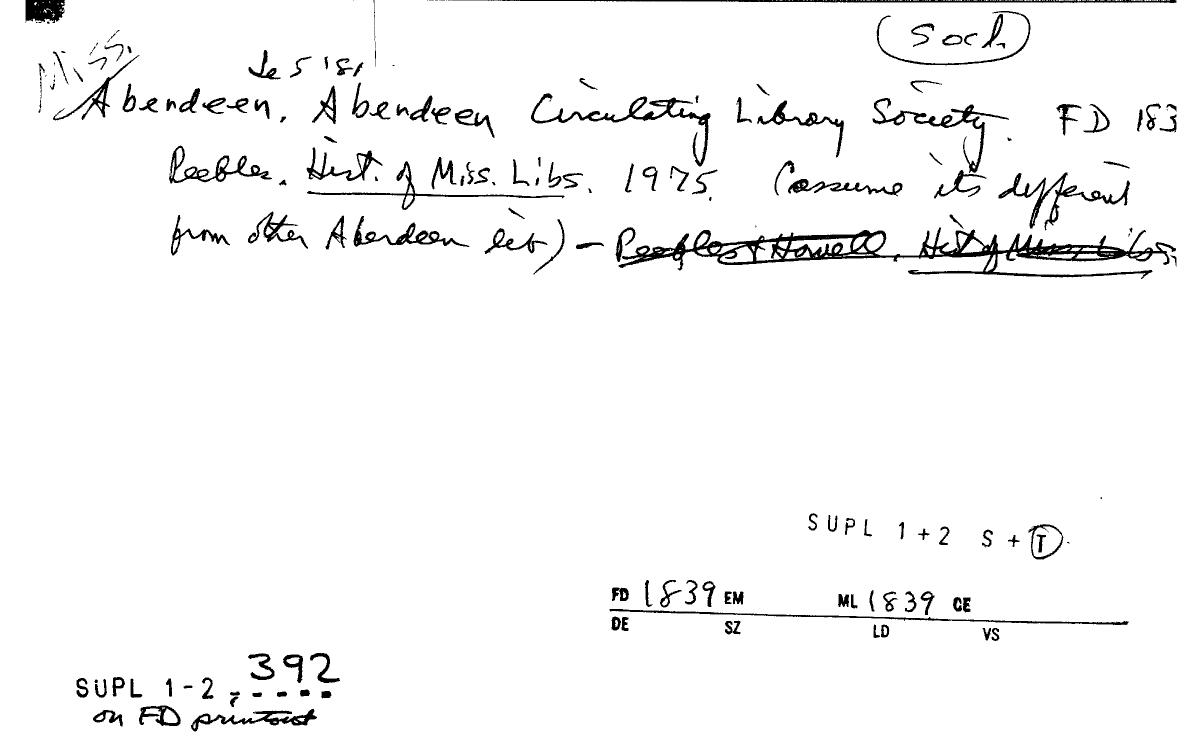 soch
Miss.
Je 5 '81
Aberdeen. Aberdeen Circulating Library Society. FD 183
Peebles. Hist. of Miss. Libs. 1975. (assume its different
from other Aberdeen lib) – Peebles & Howell. Hist of Miss. Libs.
SUPL 1+2 S + T
FD 1839 EM ML 1839 CE
DE SZ LD VS
392
SUPL 1-2,
on FD printout